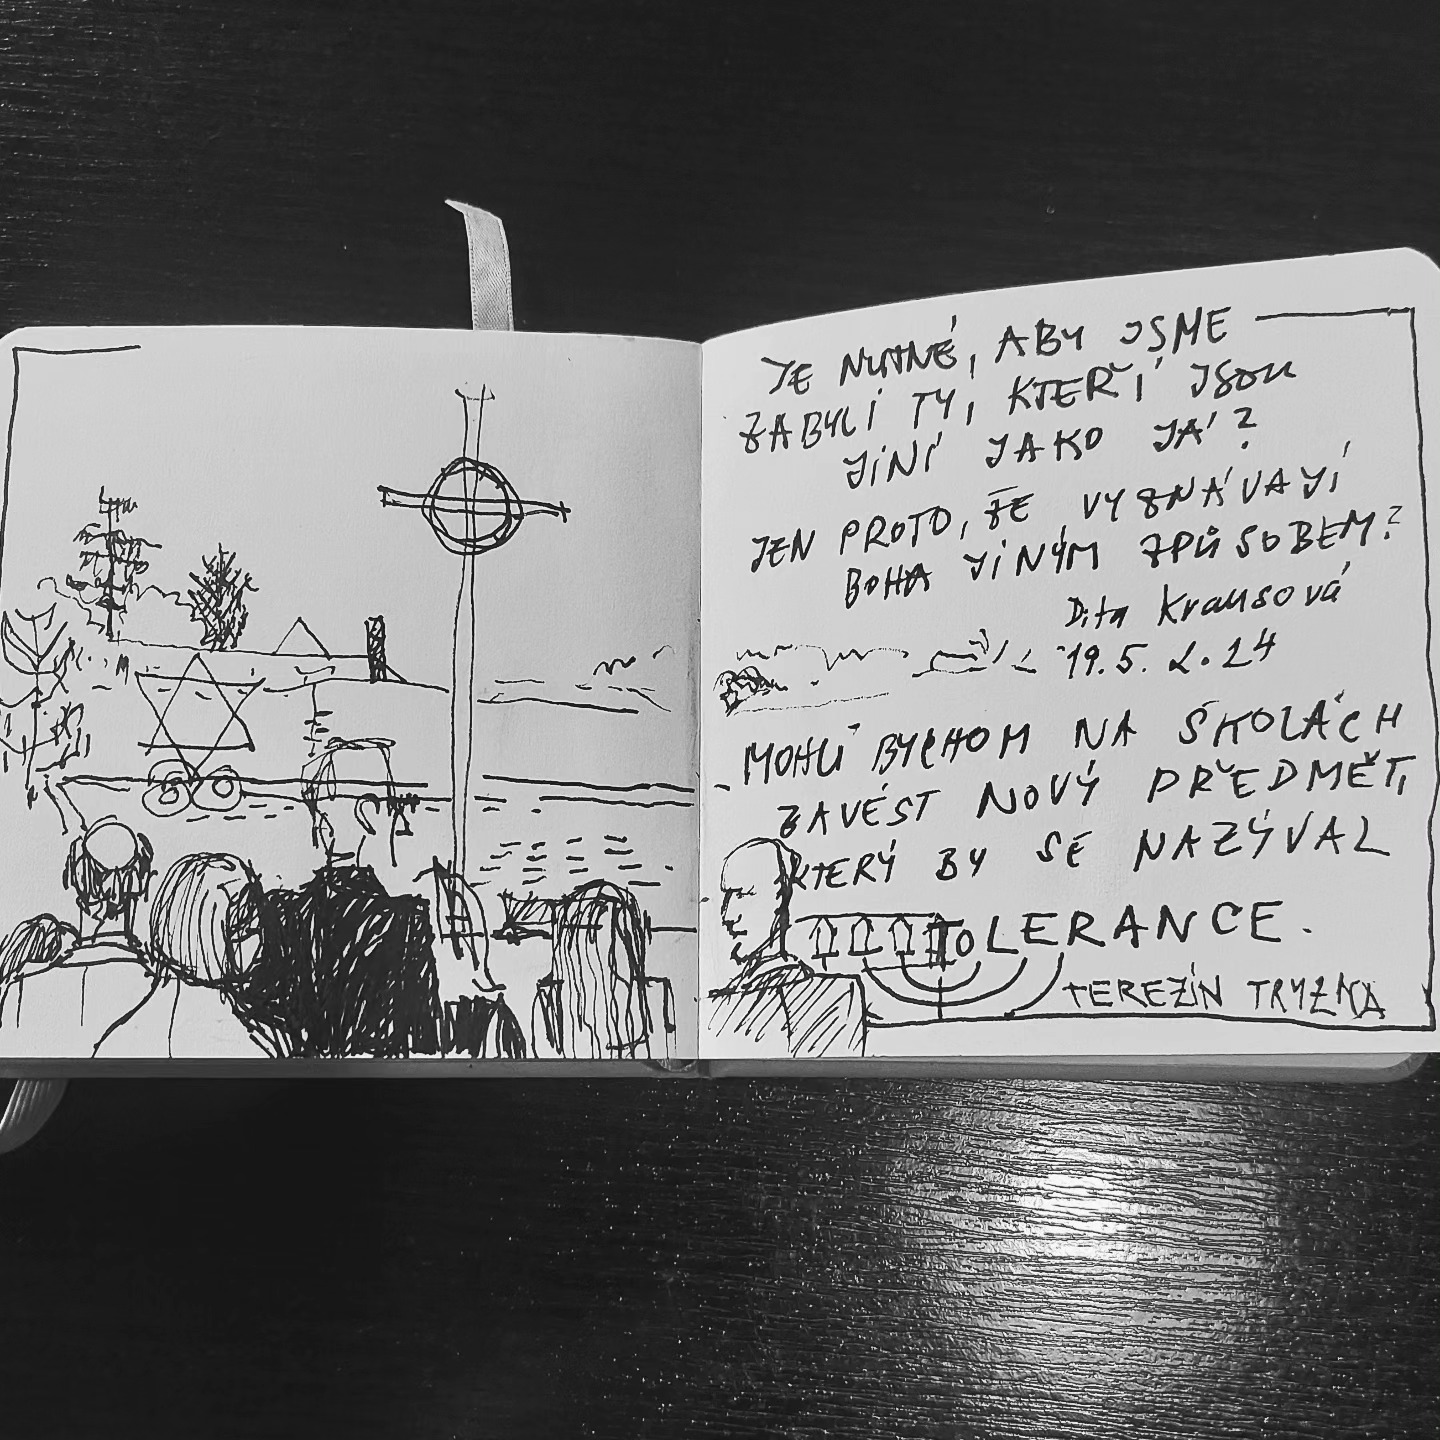 JE NUTNÉ, ABY JSME
ZABYLI TY, KTEŘÍ JSOU
JINÍ JAKO JÁ?
JEN PROTO, ŽE VYZNÁVAJÍ
BOHA JINÝM ZPŮSOBEM?
Dita Krausová
19.5.2.24
MOHLI BYCHOM NA ŠKOLÁCH
ZAVÉST NOVÝ PŘEDMĚT,
KTERÝ BY SE NAZÝVAL
TOLERANCE.
TEREZÍN TRYZNA